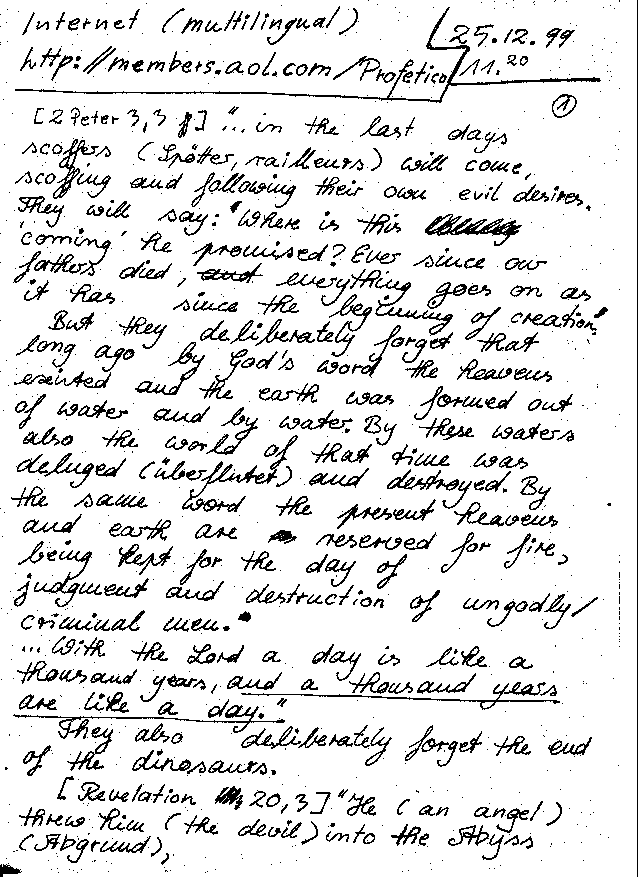 Internet (multilingual)
25.12.99
http://members.aol.com/Profetico
11.20
1
[2 Peter 3,3 ff] "...in the last days
scoffers (Spötter, railleurs) will come,
scoffing and following their own evil desires.
They will say: "Where is this
'coming' he promised? Ever since our
fathers died, and everything goes on as
it has since the beginning of creation."
But they deliberately forget that
long ago by God's word the heavens
existed and the earth was formed out
of water and by water. By these waters
also the world of that time was
deluged (überflutet) and destroyed. By
the same word the present heavens
and earth are reserved for fire,
being kept for the day of
judgment and destruction of ungodly/
criminal men."
...With the Lord a day is like a
thousand years, and a thousand years
are like a day."
They also deliberately forget the end
of the dinosaurs.
[Revelation 20,3] "He (an angel)
threw him (the devil) into the Abyss
(Abgrund),